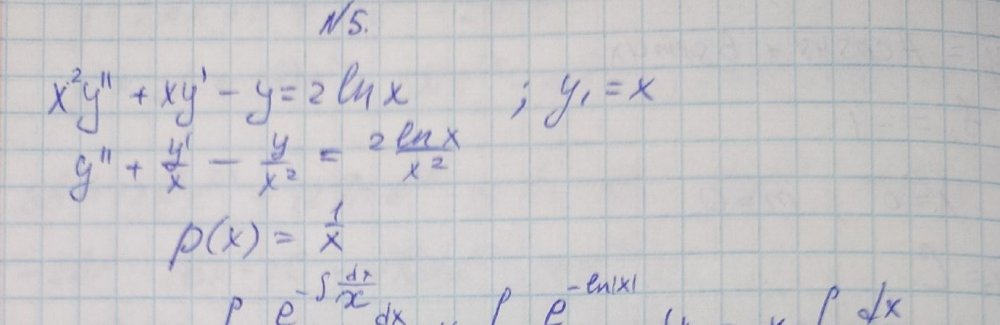 №5.
x²y'' + xy' - y = 2 ln x ; y₁ = x
y'' + y'/x - y/x² = 2 ln x/x²
p(x) = 1/x
∫ e^(-∫ dx/x) dx ∫ e^(-ln|x|) ∫ dx